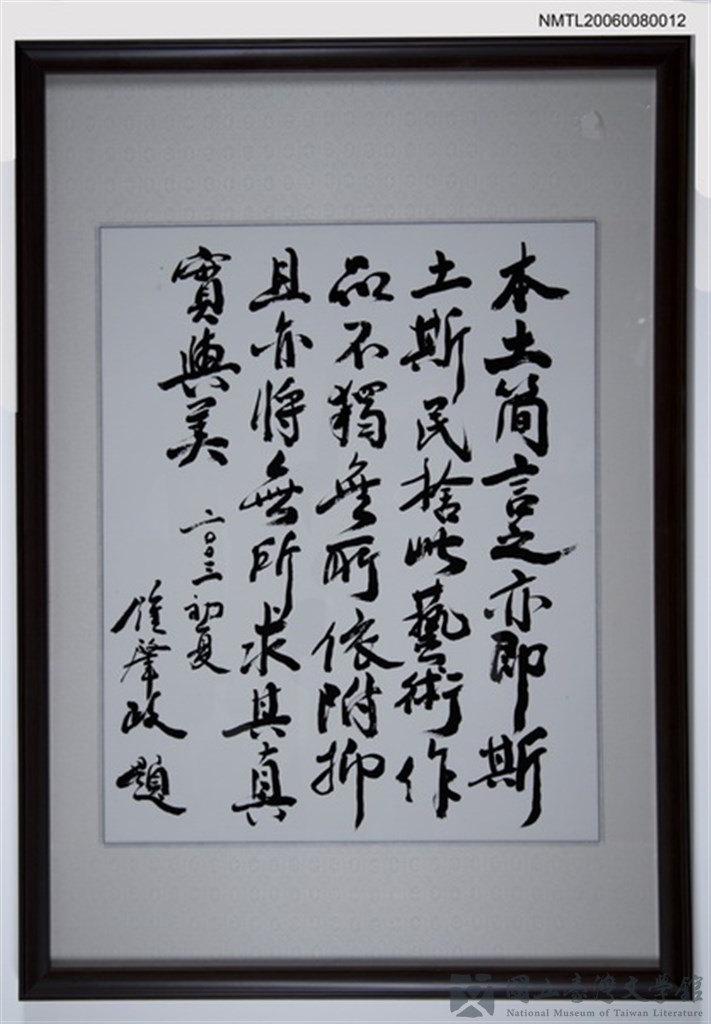 NMTL20060080012
本土简言之亦即斯
土斯民捨此藝術作
品不獨無所依附抑
且亦將無所求其真
實與美
二〇〇三初夏
鍾肇政題
國立臺灣文學館
National Museum of Taiwan Literature